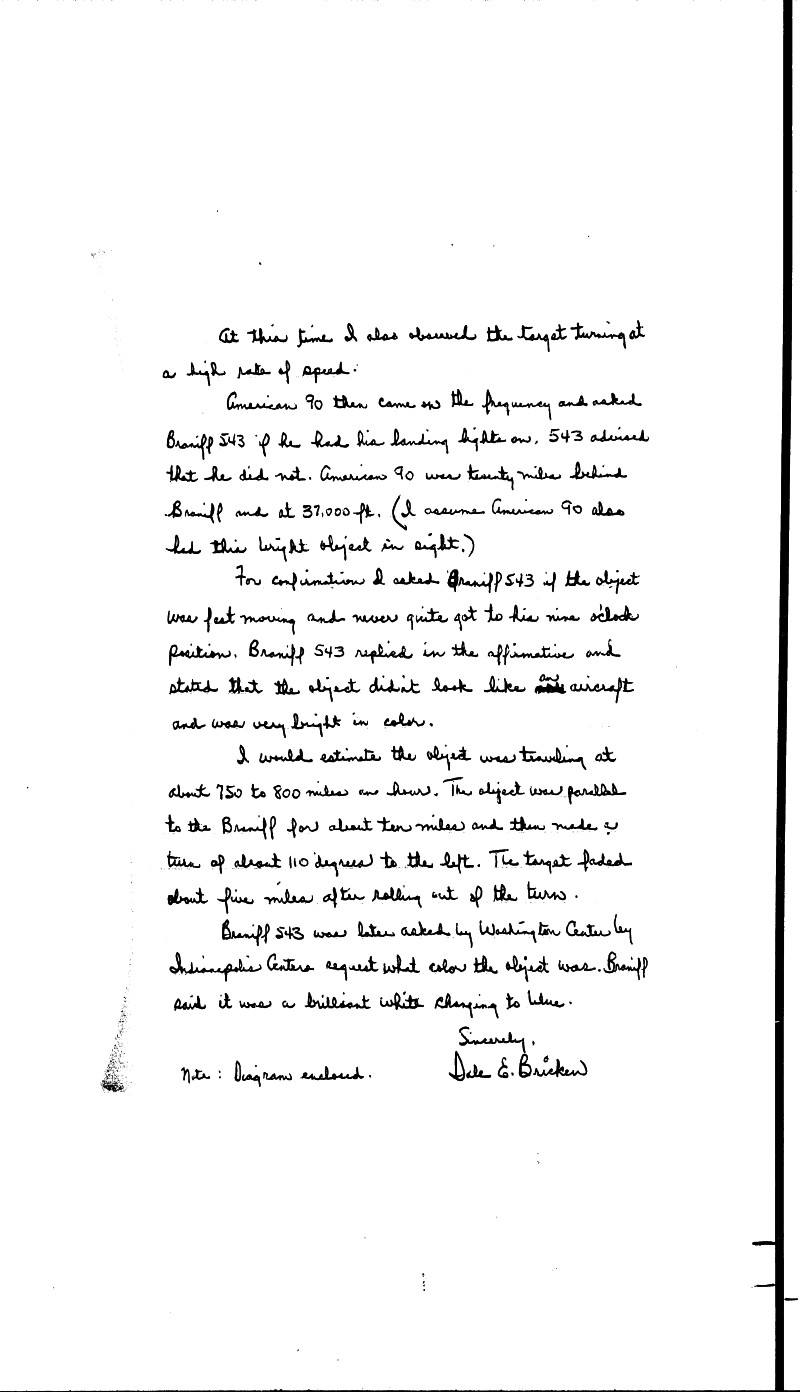 At this time I also observed the target turning at
a high rate of speed.
American 90 then came on the frequency and asked
Braniff 543 if he had his landing lights on. 543 advised
that he did not. American 90 was twenty miles behind
Braniff and at 37,000 ft. (I assume American 90 also
had this bright object in sight.)
For confirmation I asked Braniff 543 if the object
was fast moving and never quite got to his nine o'clock
position. Braniff 543 replied in the affirmative and
stated that the object didn't look like an aircraft
and was very bright in color.
I would estimate the object was traveling at
about 750 to 800 miles an hour. The object was parallel
to the Braniff for about ten miles and then made a
turn of about 110 degrees to the left. The target faded
about five miles after rolling out of the turn.
Braniff 543 was later asked by Washington Center by
Indianapolis Centers request what color the object was. Braniff
said it was a brilliant white changing to blue.
Sincerely,
Note: Diagram enclosed. Dale E. Bricken